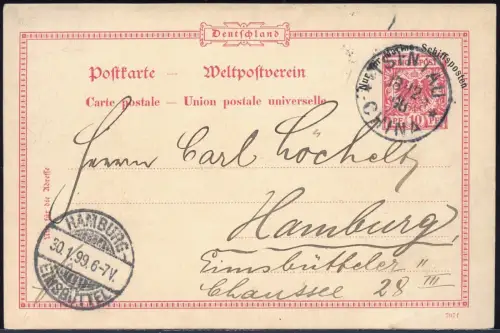 Deutschland
Postkarte — Weltpostverein
Carte postale — Union postale universelle
Nur für Marine-Schiffsposten
TSINTAU
CHINA
10
Herrn Carl Löchelt
Hamburg,
Eimsbütteler
Chaussee 28 III
Nur für die Adresse
HAMBURG-
30.1.99.6-7V.
EIMSBÜTTEL